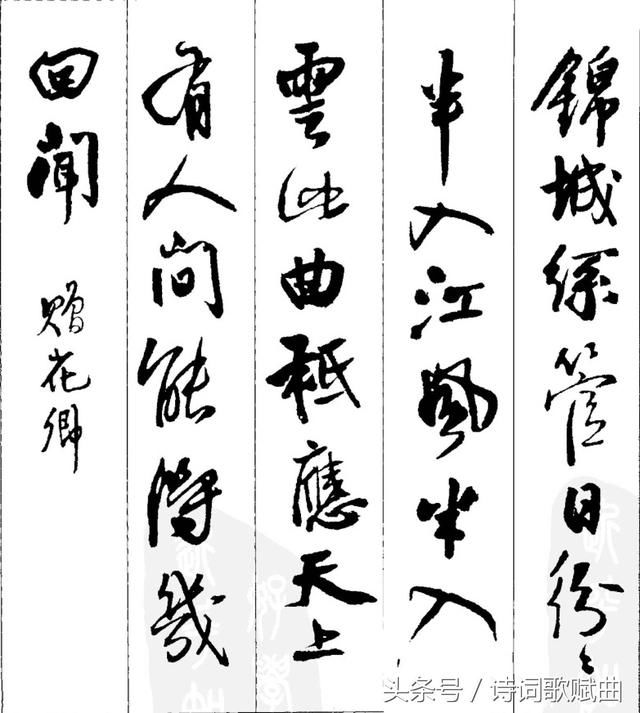 錦城絲管日紛々
半入江風半入
雲此曲秪應天上
有人間能得幾
回聞 贈花卿
头条号 / 诗词歌赋曲